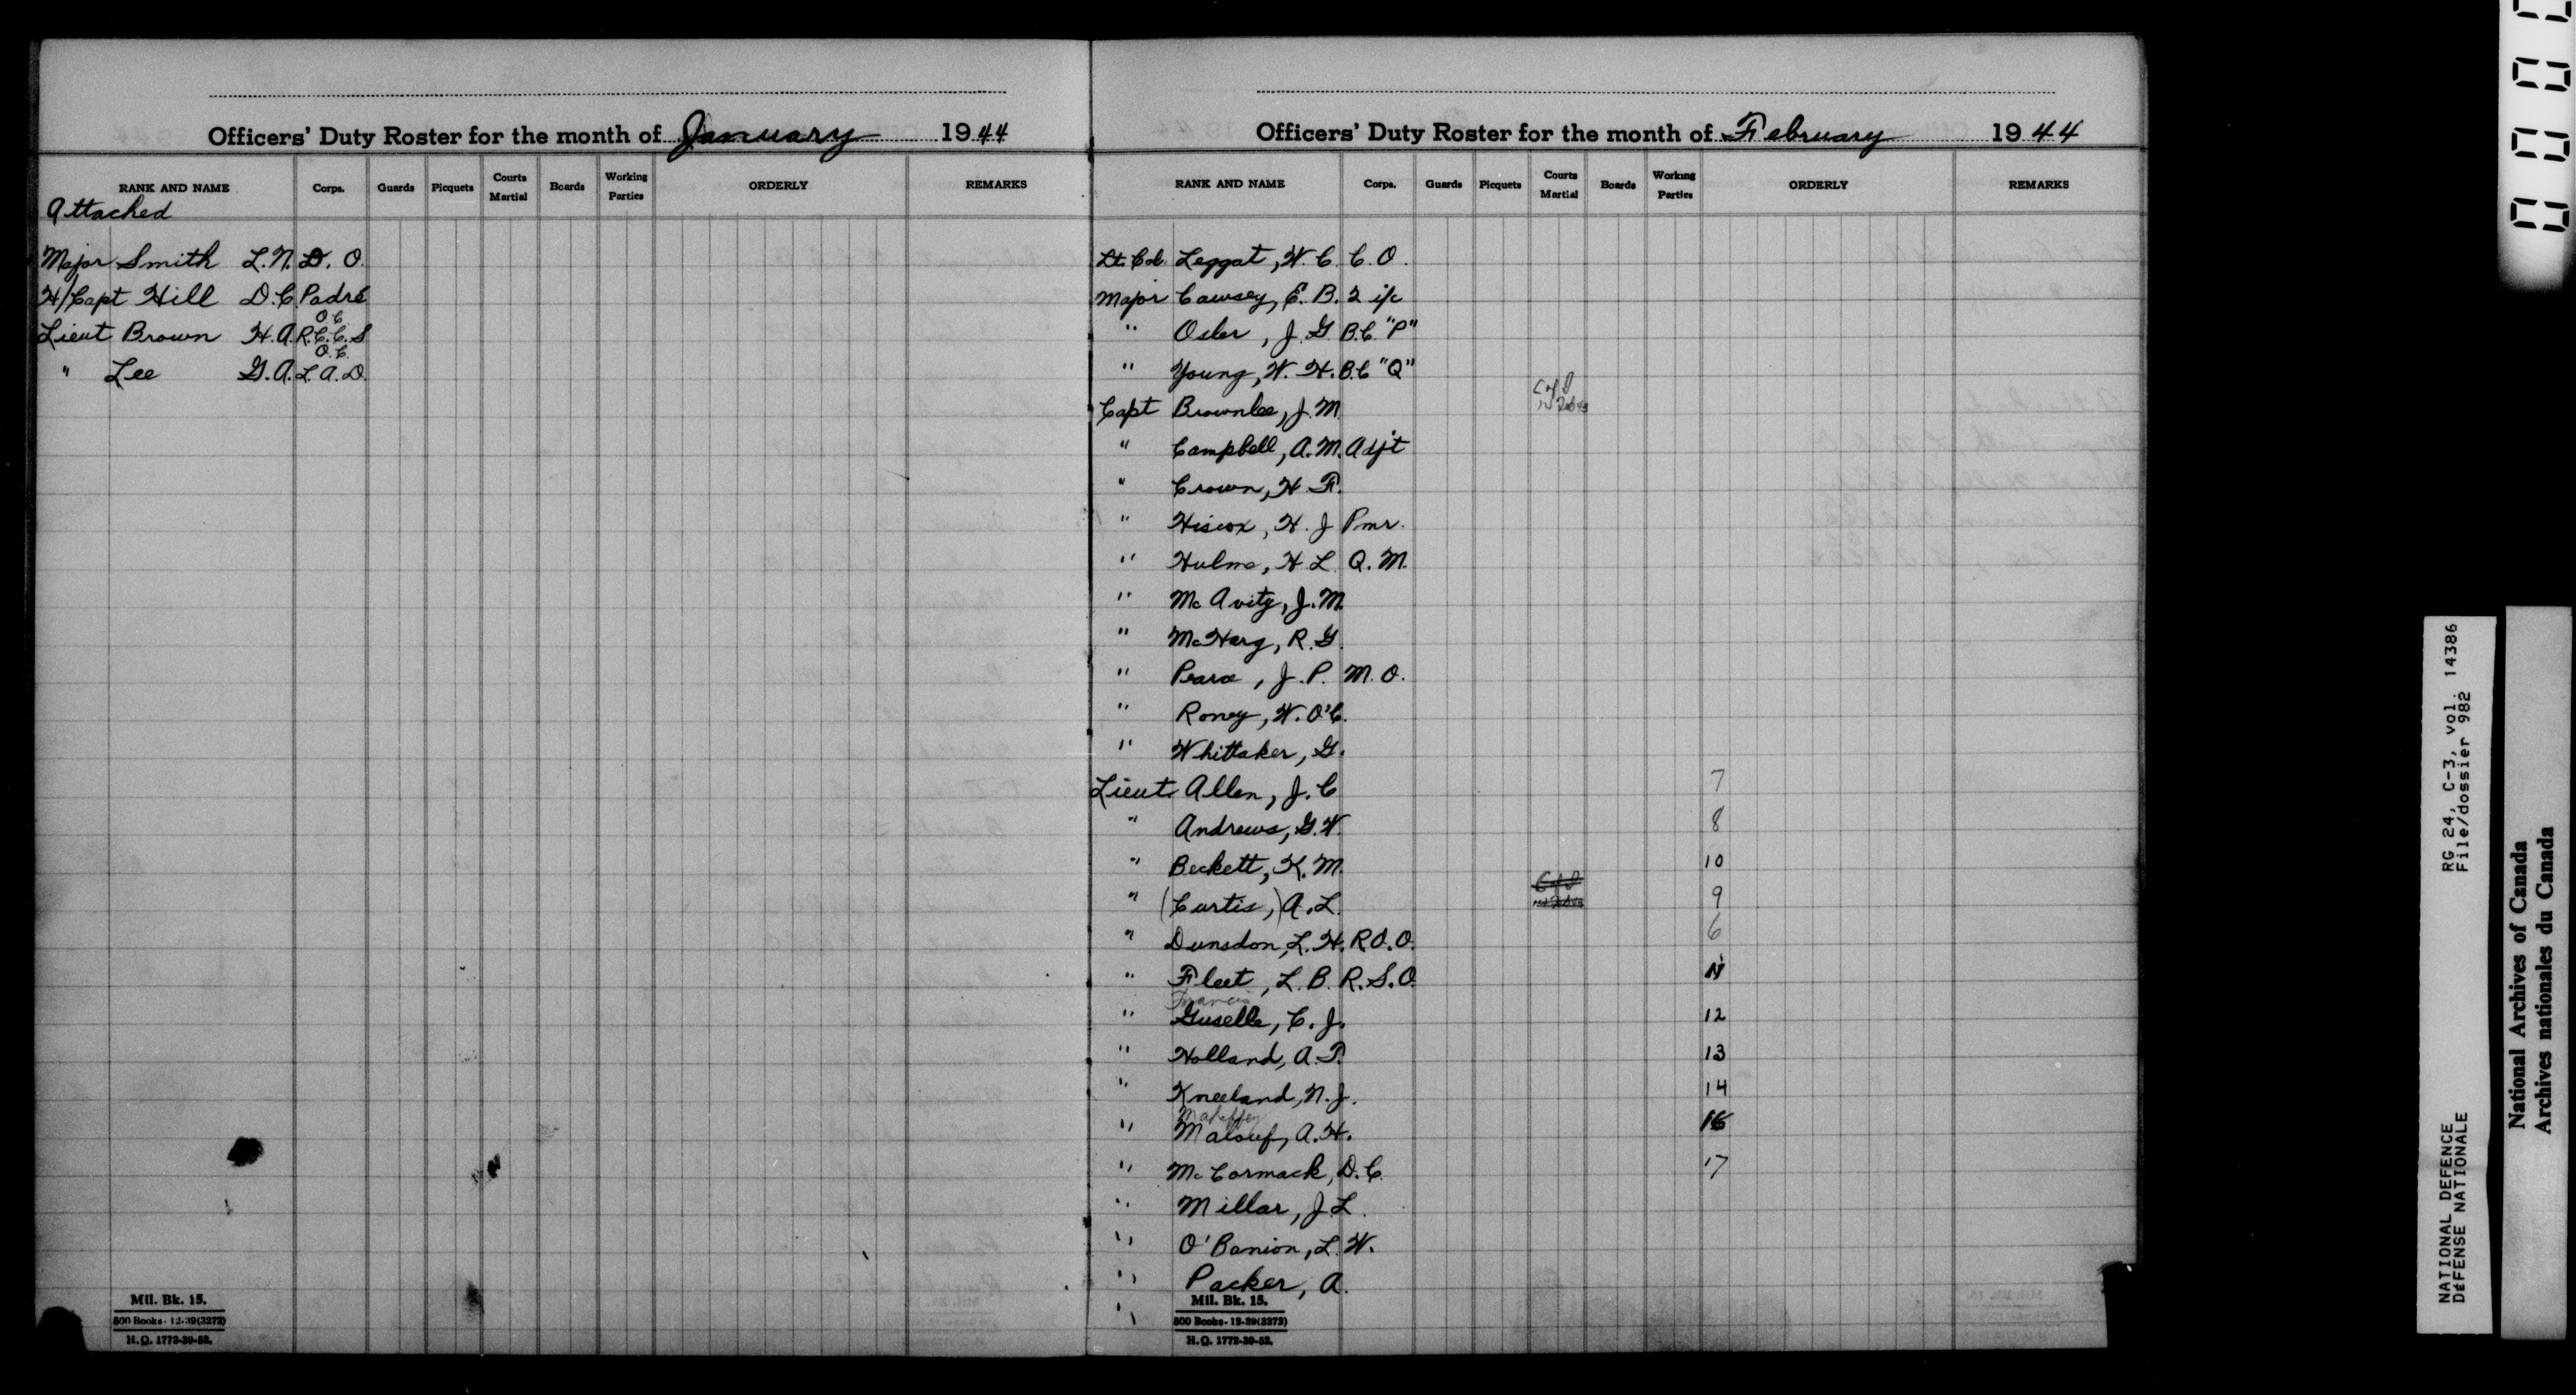 Officers' Duty Roster for the month of January 1944
RANK AND NAME Corps. Guards Picquets Courts Martial Boards Working Parties ORDERLY REMARKS
Attached
Major Smith L.N. D. O.
H/Capt Hill D.C. Padré
O C
Lieut Brown H.A. R.C.C.S
O.C.
" Lee G.A. L.A.D.
Mil. Bk. 15.
500 Books-12-39(3272)
H.Q. 1772-39-52.
Officers' Duty Roster for the month of February 1944
RANK AND NAME Corps. Guards Picquets Courts Martial Boards Working Parties ORDERLY REMARKS
Lt. Col. Leggat, W. C. C. O.
Major Cawsey, E. B. 2 i/c
" Osler, J. G B.C. "P"
" Young, W. H. B.C "Q"
Capt Brownlee, J. M.
" Campbell, A. M. Adjt
" Crown, H F.
" Hiscox, H. J Pmr.
" Hulme, H L Q. M.
" McAvity, J. M.
" McHarg, R. G.
" Pearce, J. P. M. O.
" Roney, W. O'C.
" Whittaker, G.
Lieut. Allen, J. C 7
" Andrews, G. W. 8
" Beckett, K. M. 10
" (Curtis,) A. L. 9
" Dunsdon, L. H. R.O.O. 6
" Fleet, L. B. R. S. O. 11
Francis
" Guselle, C. J. 12
" Holland, A. F. 13
" Kneeland, N. J. 14
" Malouf, A. H. 16
" McCormack, D. C. 17
" Millar, J L.
" O'Banion, L. W.
" Packer, A.
"
Mil. Bk. 15.
500 Books-12-39(3272)
H.Q. 1772-39-52.
NATIONAL DEFENCE RG 24, C-3, vol. 14386
DÉFENSE NATIONALE File/dossier 982
National Archives of Canada
Archives nationales du Canada